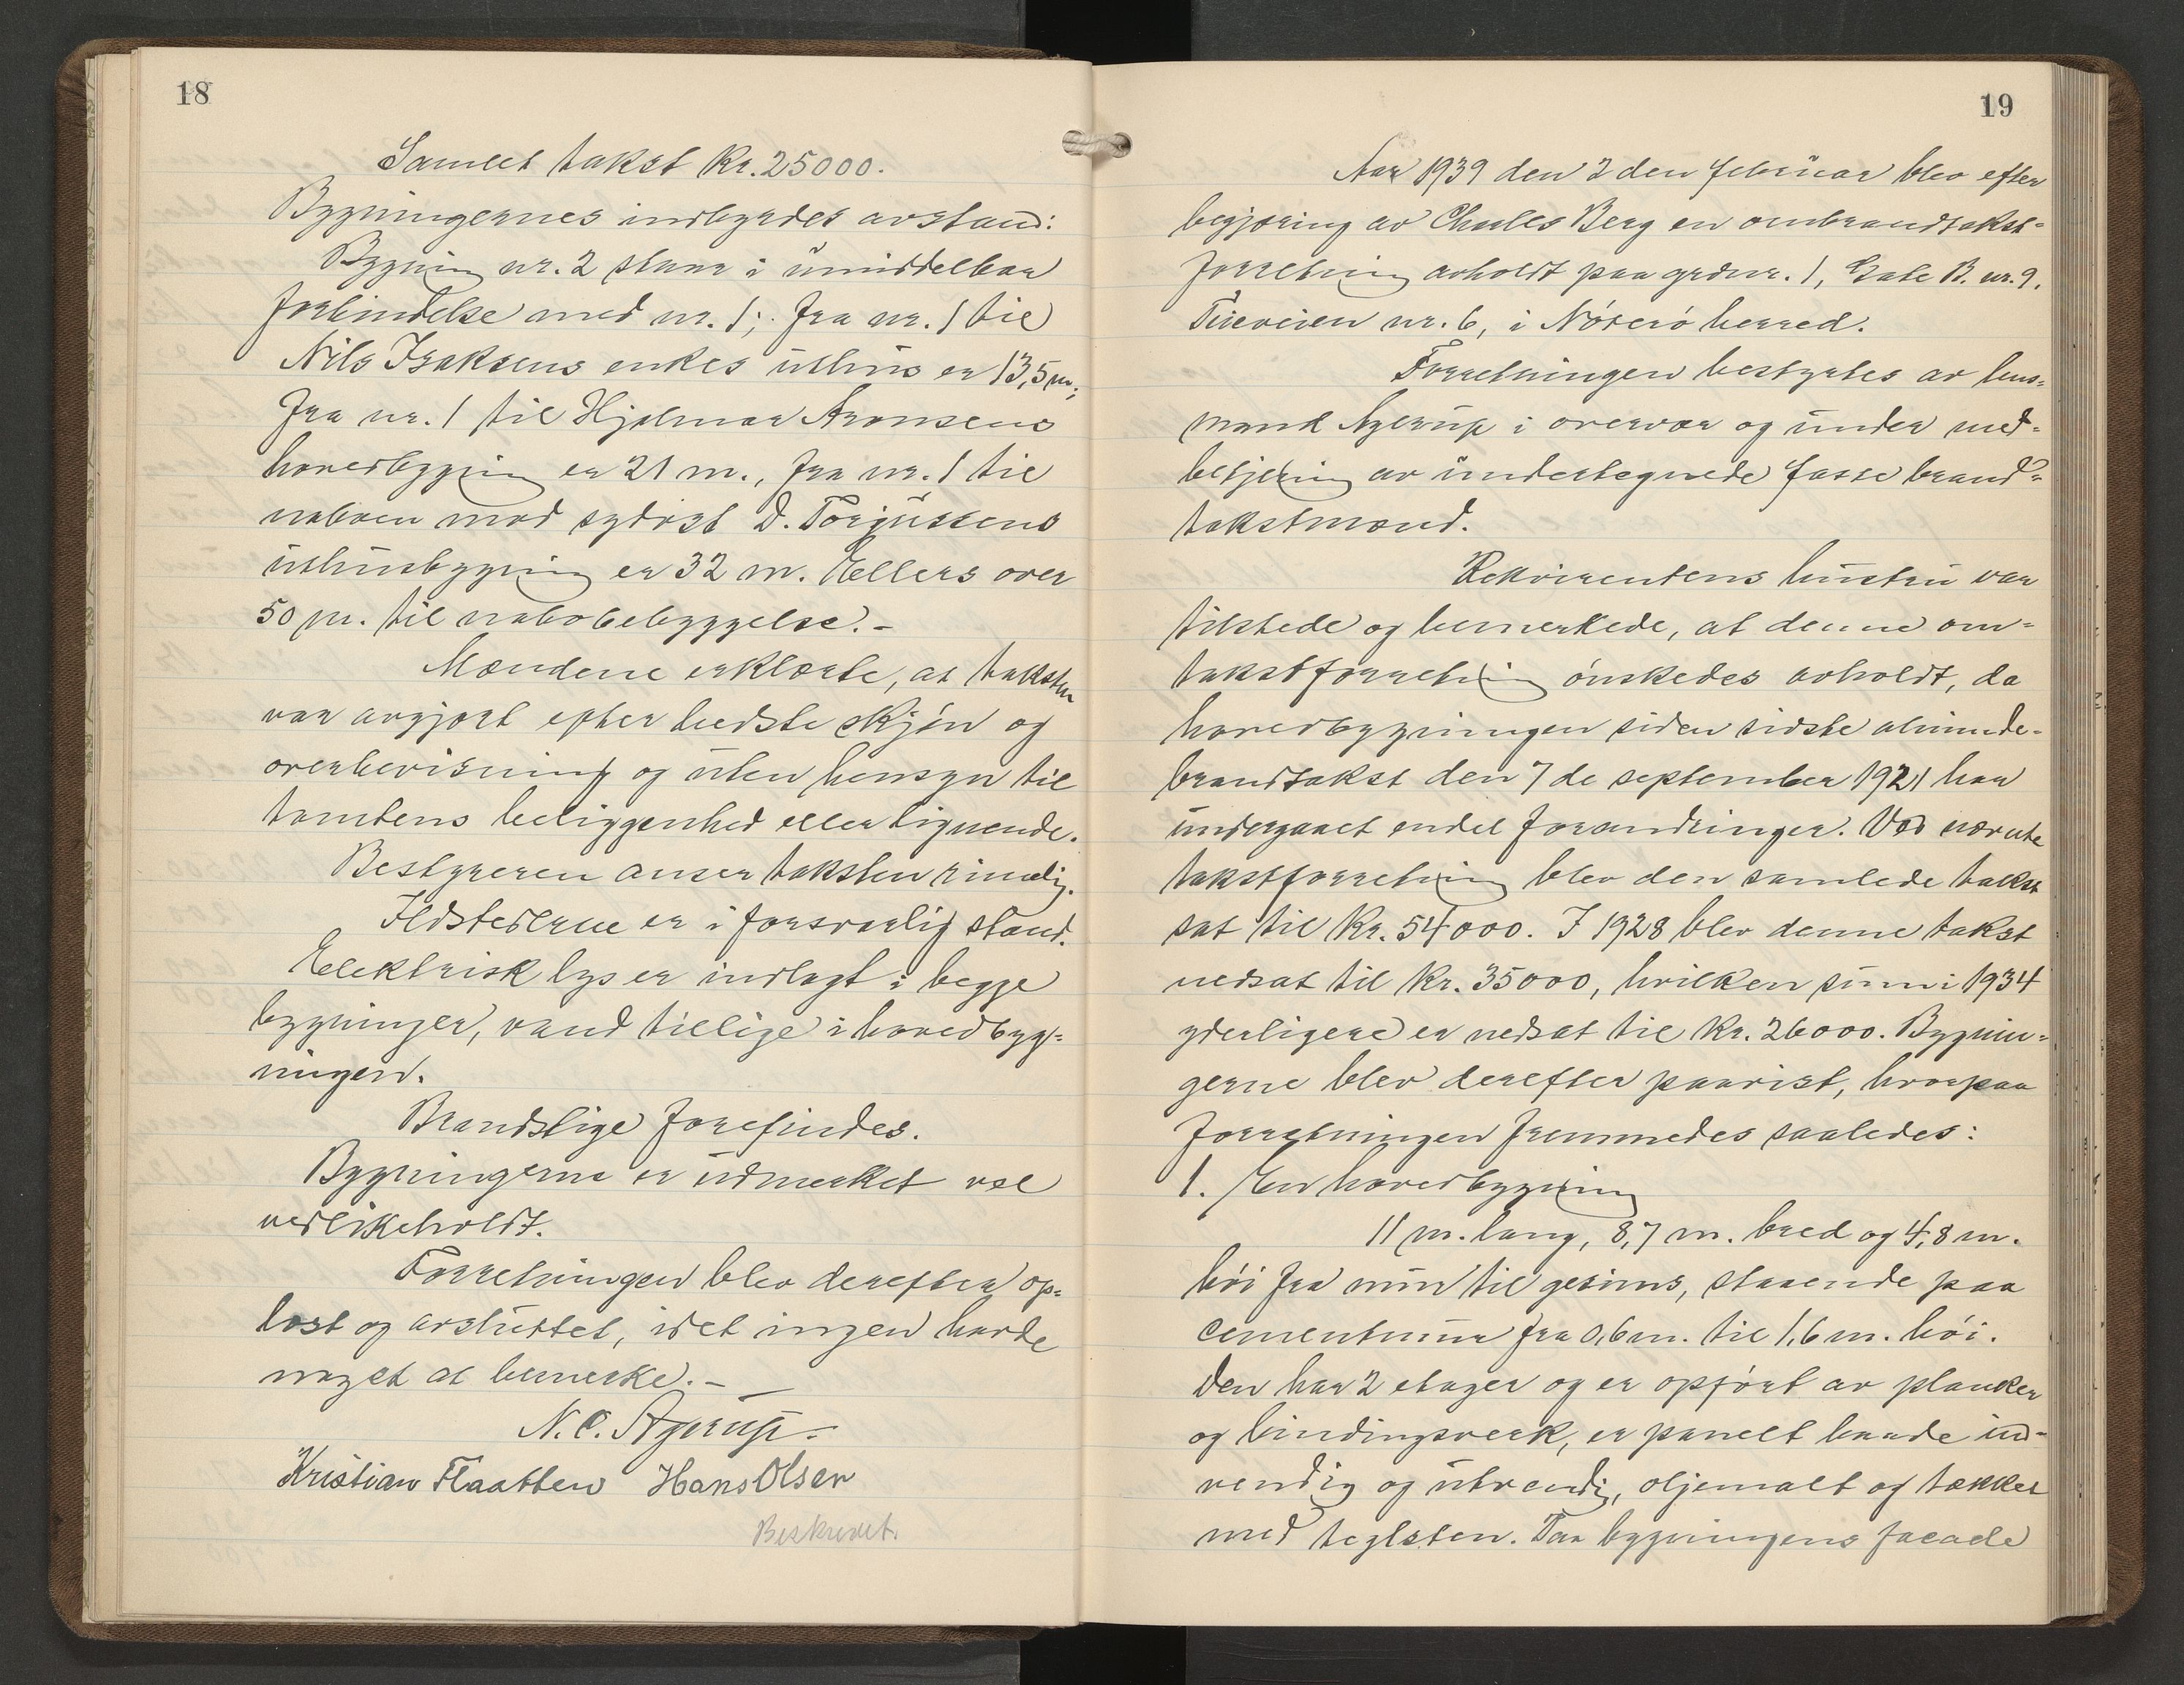 18
Samlet takst kr. 25000.
Bygningernes indbyrdes avstand:
Bygning nr. 2 staar i umiddelbar
forbindelse med nr. 1; fra nr. 1 til
Nils Isaksens enkes uthus er 13,5 m;
fra nr. 1 til Hjalmar Aronsens
hovedbygning er 21 m., fra nr. 1 til
naboen mod sydost D. Torjussens
uthusbygning er 32 m. Ellers over
50 m. til nabobebyggelse. -
Mændene erklærte, at taksten
var avgjort efter bedste skjøn og
overbevisning og uten hensyn til
tomtens beliggenhed eller lignende.
Bestyreren anser taksten rimelig.
Ildstederne er i forsvarlig stand.
Elektrisk lys er indlagt i begge
bygninger, vand tillige i hovedbyg-
ningen.
Brandstige forefindes.
Bygningerne er udmerket vel
vedlikeholdt.
Forretningen blev derefter op-
læst og avsluttet, idet ingen havde
noget at bemerke. -
N. C. Agerup.
Kristian Flaatten Hans Olsen
Beskrevet.
19
Aar 1939 den 2den februar blev efter
begjæring av Charles Berg en ombrandtakst-
forretning avholdt paa grdnr. 1, Gate B. nr. 9,
nr. 6, i Nøterø herred.
Forretningen bestyrtes av lens-
mand Agerup i overvær og under med-
betjening av undertegnede faste brand-
takstmænd.
Rekvirentens hustru var
tilstede og bemerkede, at denne om-
takstforretning ønskedes avholdt, da
hovedbygningen siden sidste alminde-
brandtakst den 7de september 1921 har
undergaaet endel forandringer. Ved nævnte
takstforretning blev den samlede takst
sat til kr. 54000. I 1928 blev denne takst
nedsat til kr. 35000, hvilken sum i 1934
yderligere er nedsat til kr. 26000. Bygnin-
gerne blev derefter paavist, hvorpaa
forretningen fremmedes saaledes:
1. En hovedbygning
11 m. lang, 8,7 m. bred og 4,8 m.
høi fra mur til gesims, staaende paa
cementmur fra 0,6 m. til 1,6 m. høi.
Den har 2 etager og er opført av planker
og bindingsverk, er panelt baade ind-
vendig og utvendig, oljemalt og tækket
med teglsten. Paa bygningens facade